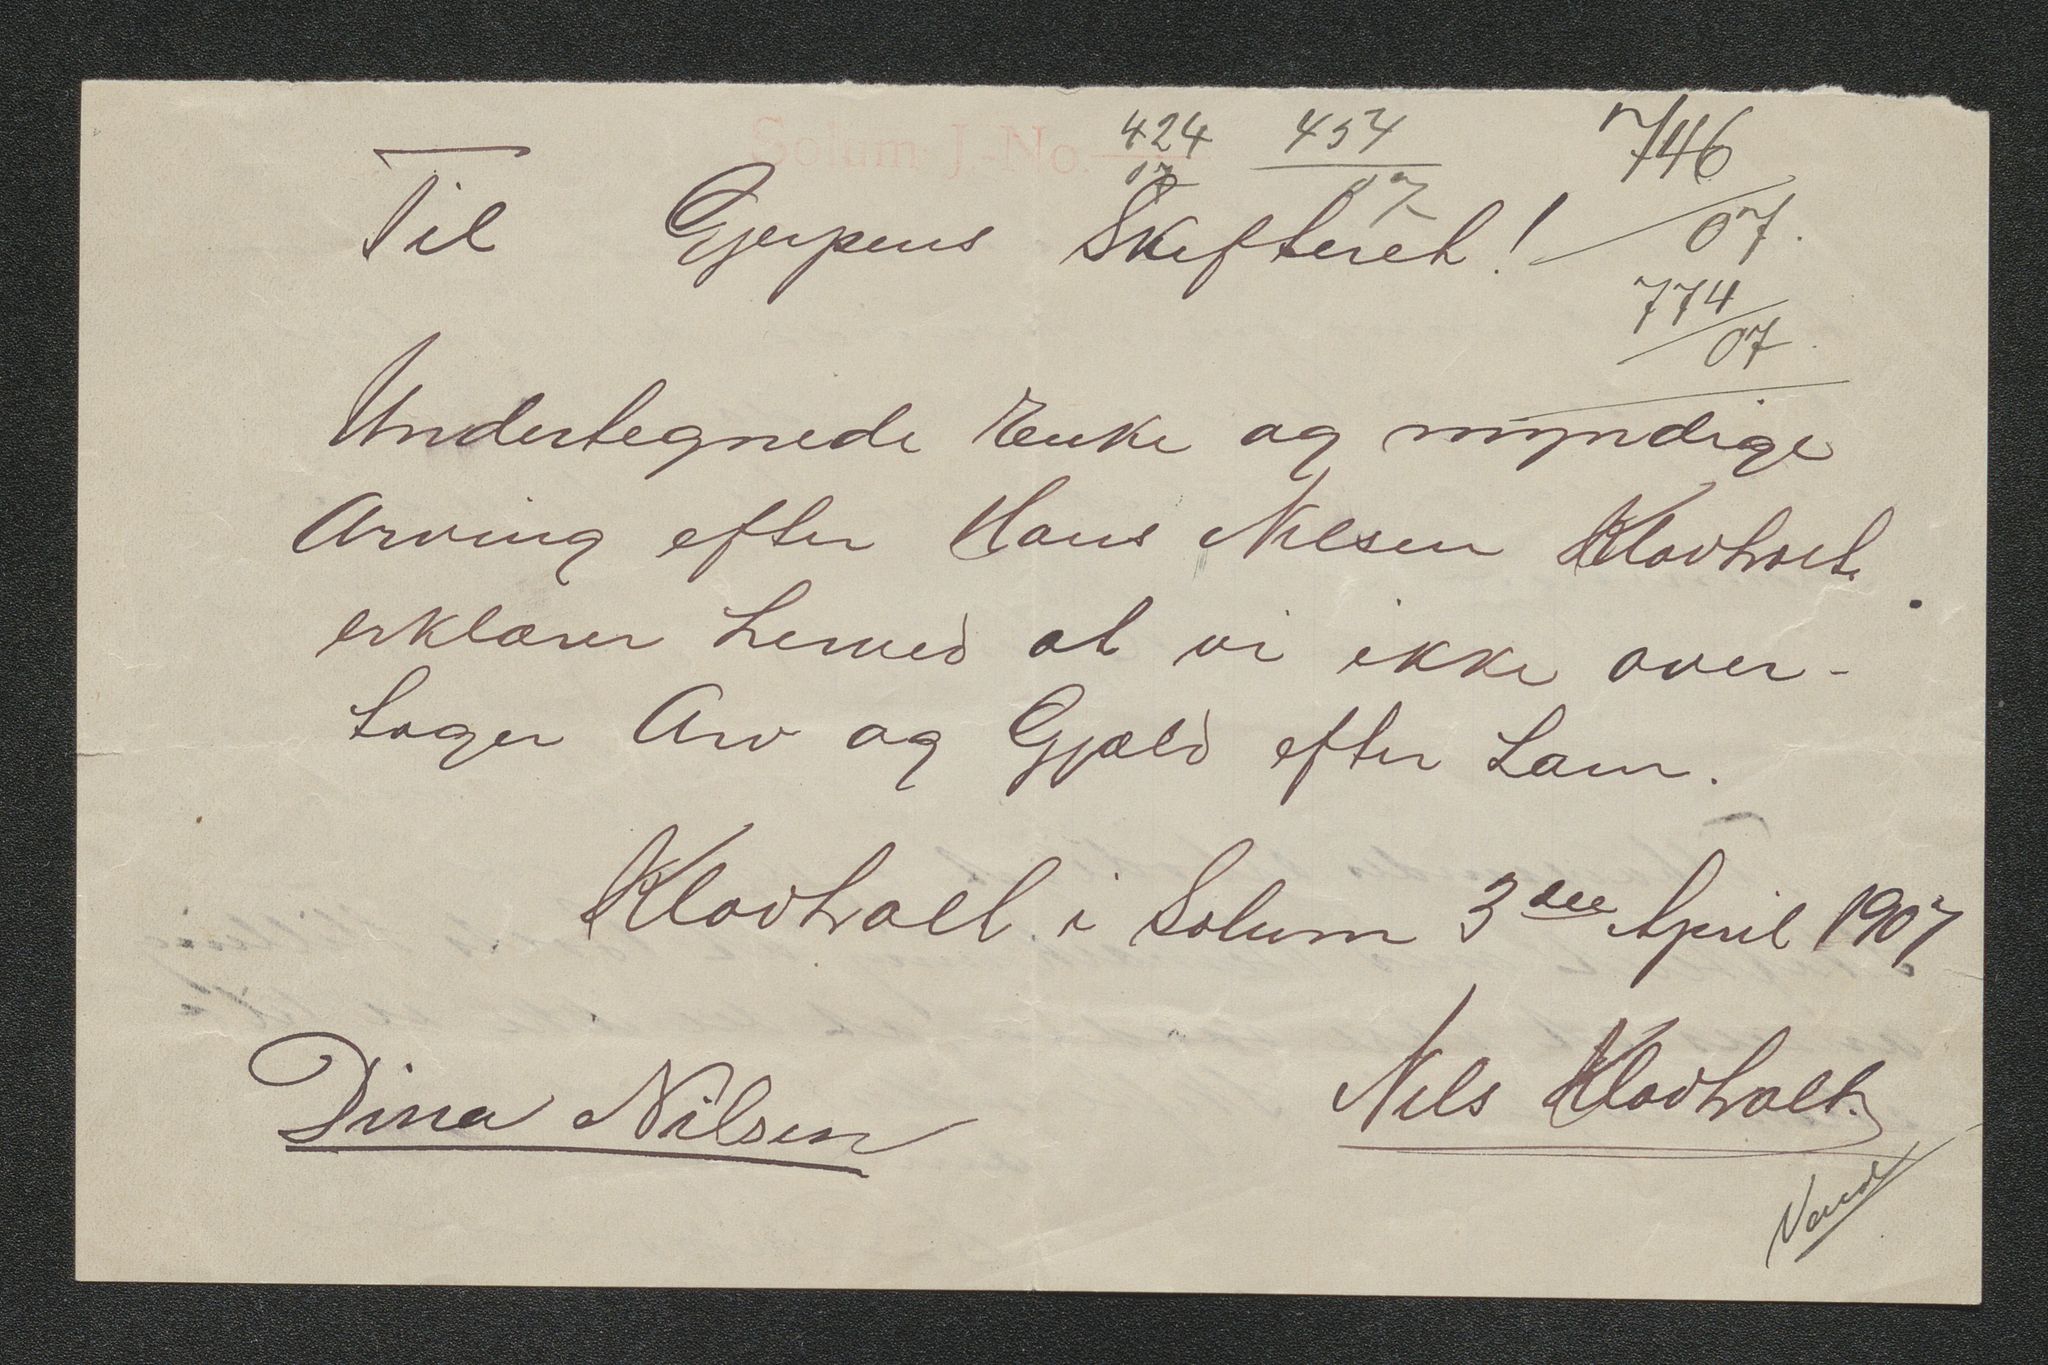 Solum J.-No. 424/07 454/07 746/07.
Til Gjerpens Skifteret!
774/07
Undertegnede Enke og myndige
Arving efter Hans Nilsen Klovholt
erklærer herved at vi ikke over-
tager Arv og Gjæld efter ham.
Klovholt i Solum 3die April 1907
Dina Nilsen Nils Klovholt.
Vend